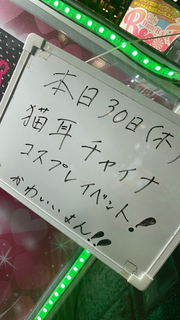 本日30日(木)
猫耳チャイナ
コスプレイベント!
かわいいもん!!